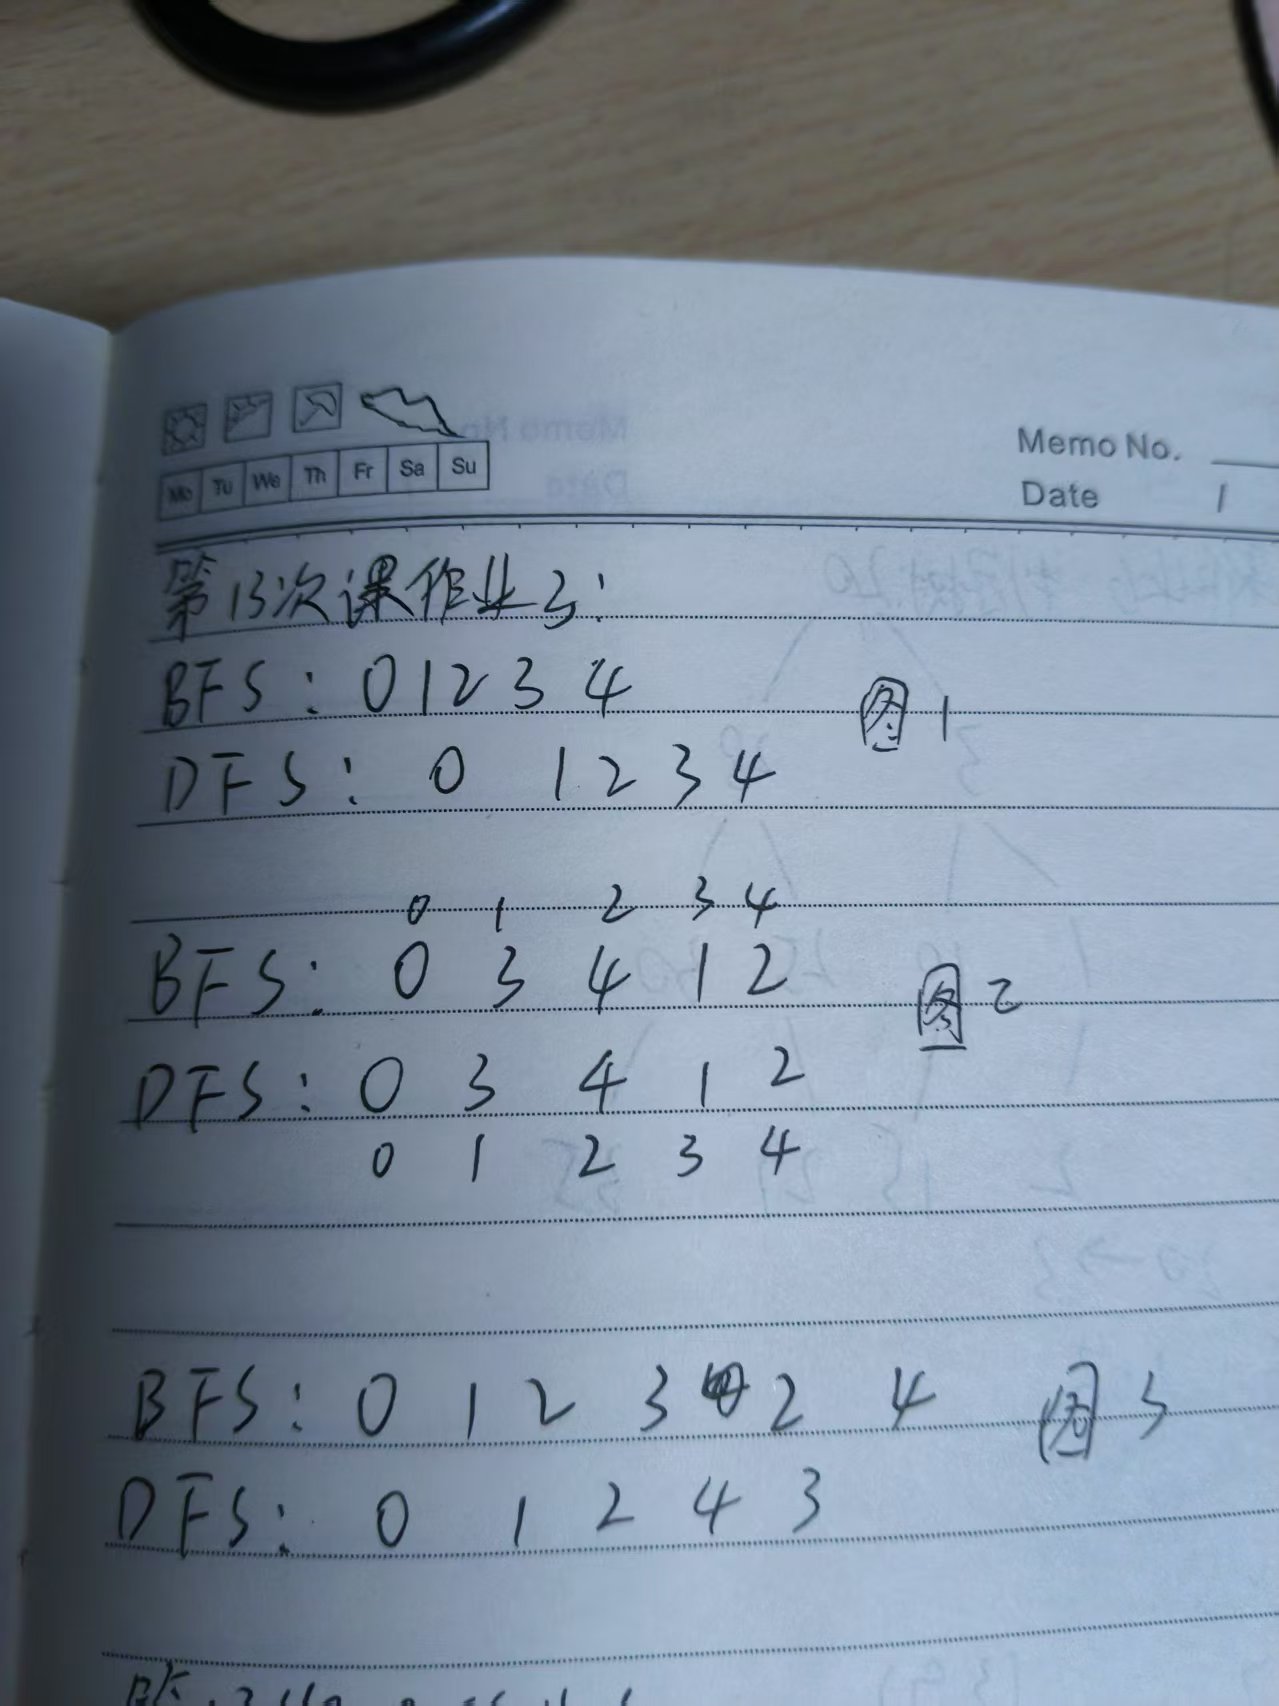 Memo No.
Date /
Mo Tu We Th Fr Sa Su
第13次课作业3:
BFS: 0 1 2 3 4 图1
DFS: 0 1 2 3 4
0 1 2 3 4
BFS: 0 3 4 1 2 图2
DFS: 0 3 4 1 2
0 1 2 3 4
BFS: 0 1 2 3 2 4 图3
DFS: 0 1 2 4 3